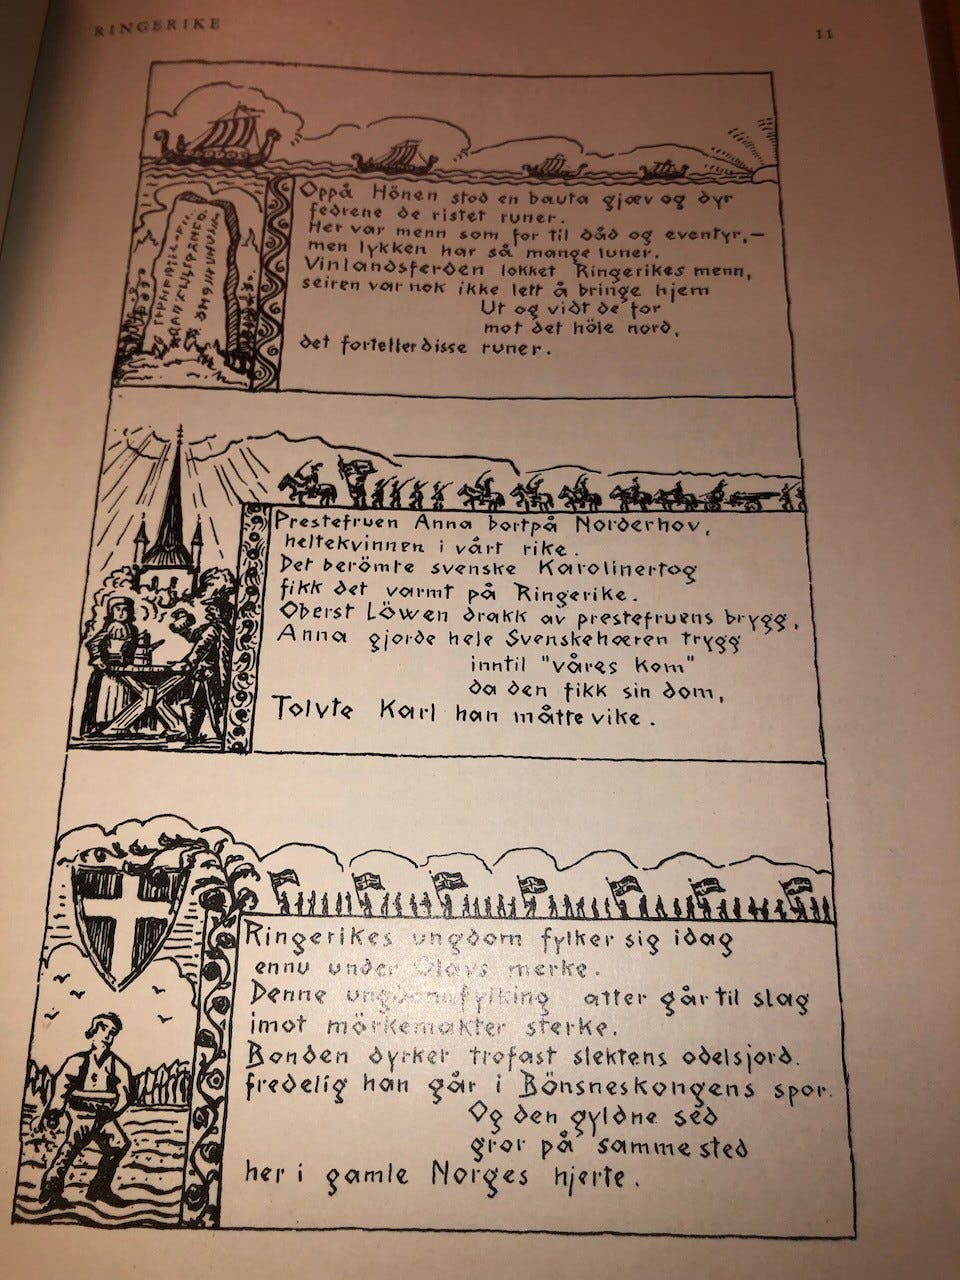 RINGERIKE
11
Oppå Hönen stod en bauta gjæv og dyr
fedrene de ristet runer.
Her var menn som for til dåd og eventyr,—
men lykken har så mange luner.
Vinlandsferden lokket Ringerikes menn,
seiren var nok ikke lett å bringe hjem
Ut og vidt de for
mot det höie nord,
det forteller disse runer.
Prestefruen Anna bortpå Norderhov,
heltekvinnen i vårt rike.
Det berömte svenske Karolinertog
fikk det varmt på Ringerike.
Oberst Löwen drakk av prestefruens brygg,
Anna gjorde hele Svenskehæren trygg
inntil "våres kom"
da den fikk sin dom,
Tolvte Karl han måtte vike.
Ringerikes ungdom fylker sig idag
ennu under Olavs merke.
Denne ungdomsfylking atter går til slag
imot mörkemakter sterke.
Bonden dyrker trofast slektens odelsjord.
fredelig han går i Bönsneskongens spor.
Og den gyldne sed
gror på samme sted
her i gamle Norges hjerte.